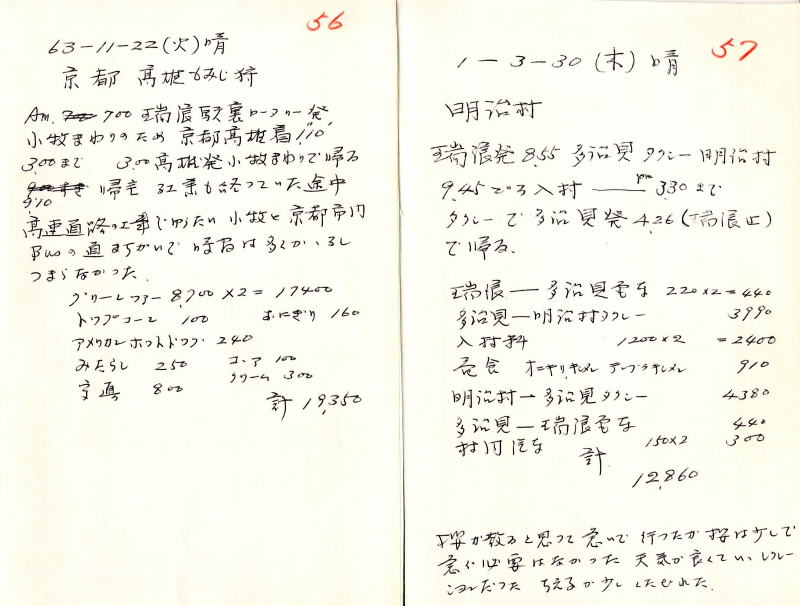 56
63-11-22(火)晴
京都 高雄もみじ狩
Am. 700 瑞浪駅裏ロータリー発
小牧まわりのため 京都高雄着1,10
3,00まで 3,00高雄発小牧まわりで帰る
9,10 帰宅 紅葉も終っていた途中
高速道路の工事でゆうたい 小牧と京都市内
Busの道まちがいで時間は多くかゝるし
つまらなかった.
グリーンツアー 8,700 ×2= 17400
100 おにぎり 160
アメリカンホットドック 240
みたらし 250 コーア 100
写真 800 クリーム 300
計 19,350
57
1-3-30(木)晴
明治村
瑞浪発 8.55 多治見 タクシー 明治村
9,45ごろ入村 ― pm 3,30まで
タクシーで多治見発 4.26 (瑞浪止)
で帰る.
瑞浪―多治見電車 220×2=440
多治見―明治村タクシー 3990
入村料 1200×2 =2400
昼食 910
明治村―多治見タクシー 4380
多治見―瑞浪電車 440
村内汽車 150×2 300
計 12,860
桜が散ると思って急いで行ったが桜は少しで
急ぐ必要はなかった 天気が良くていいレクレー
ションだった ちえ子が少しくたびれた.